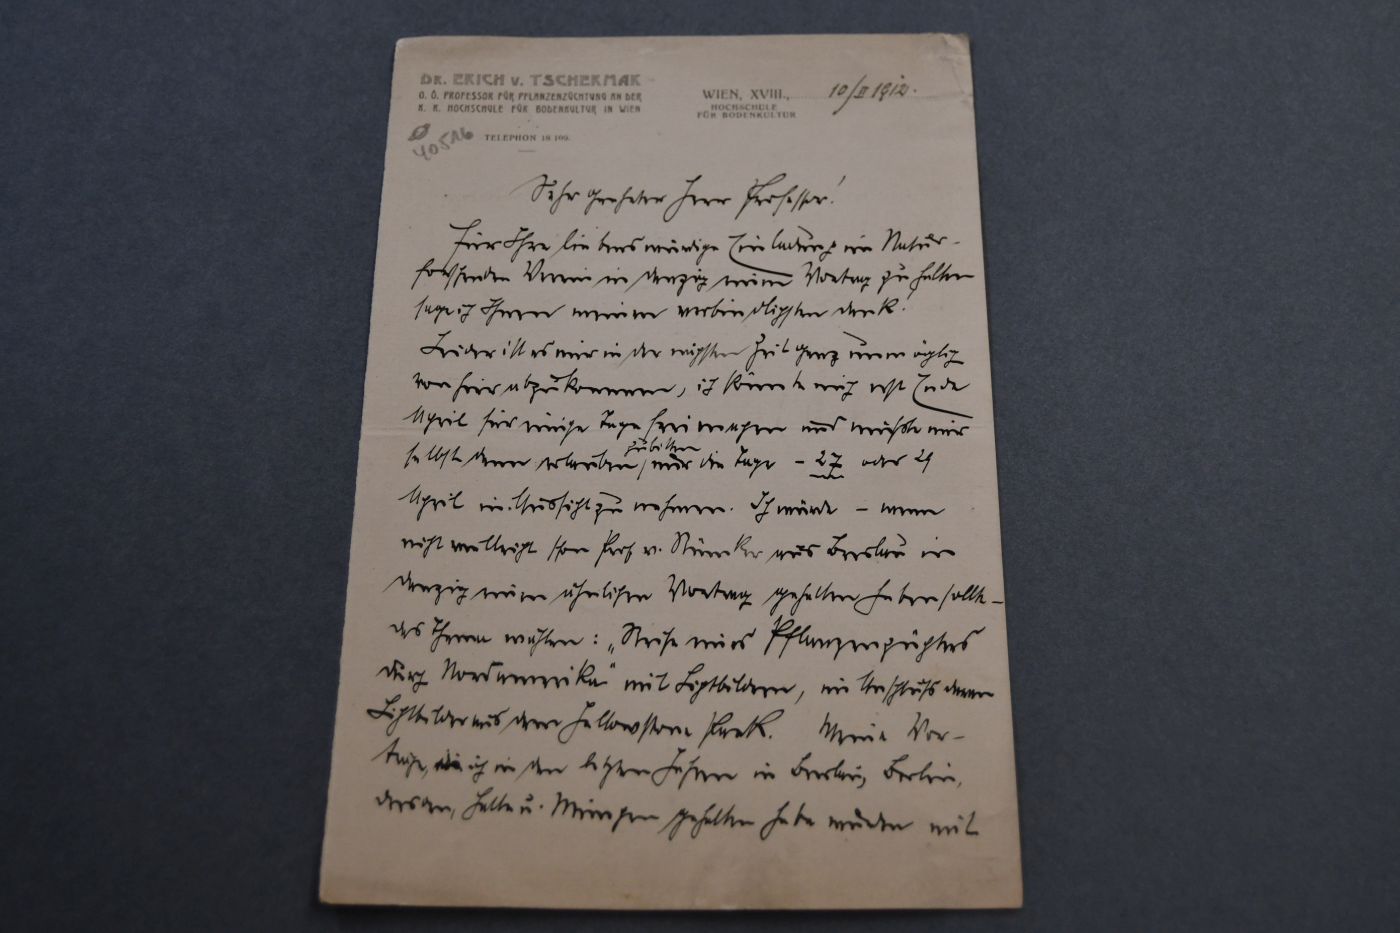 DR. ERICH V. TSCHERMAK
O. Ö. PROFESSOR FÜR PFLANZENZÜCHTUNG AN DER
K. K. HOCHSCHULE FÜR BODENKULTUR IN WIEN
TELEPHON 18.109.
WIEN, XVIII.,
HOCHSCHULE
FÜR BODENKULTUR
10/II 1912.
40516
Sehr geehrter Herr Professor!
Für Ihre liebenswürdige Einladung im Natur-
forschenden Verein in Danzig einen Vortrag zu halten
sage ich Ihnen meinen verbindlichsten Dank!
Leider ist es mir in der nächsten Zeit ganz unmöglich
von hier abzukommen, ich könnte mich erst Ende
April für einige Tage frei machen und möchte mir
selbst dann erlauben zu bitten, nur die Tage – 27 oder 29
April in Aussicht zu nehmen. Ich würde – wenn
nicht vielleicht schon Prof. v. Rümker aus Breslau in
Danzig einen ähnlichen Vortrag gehalten haben sollte –
das Thema wählen: „Reise eines Pflanzenzüchters
durch Nordamerika" mit Lichtbildern, im Anschluss daran
Lichtbilder aus dem Jellowstone Park. Meine Vor-
träge, die ich in den letzten Jahren in Breslau, Berlin,
Dresden, Halle u. München gehalten habe wurden mit